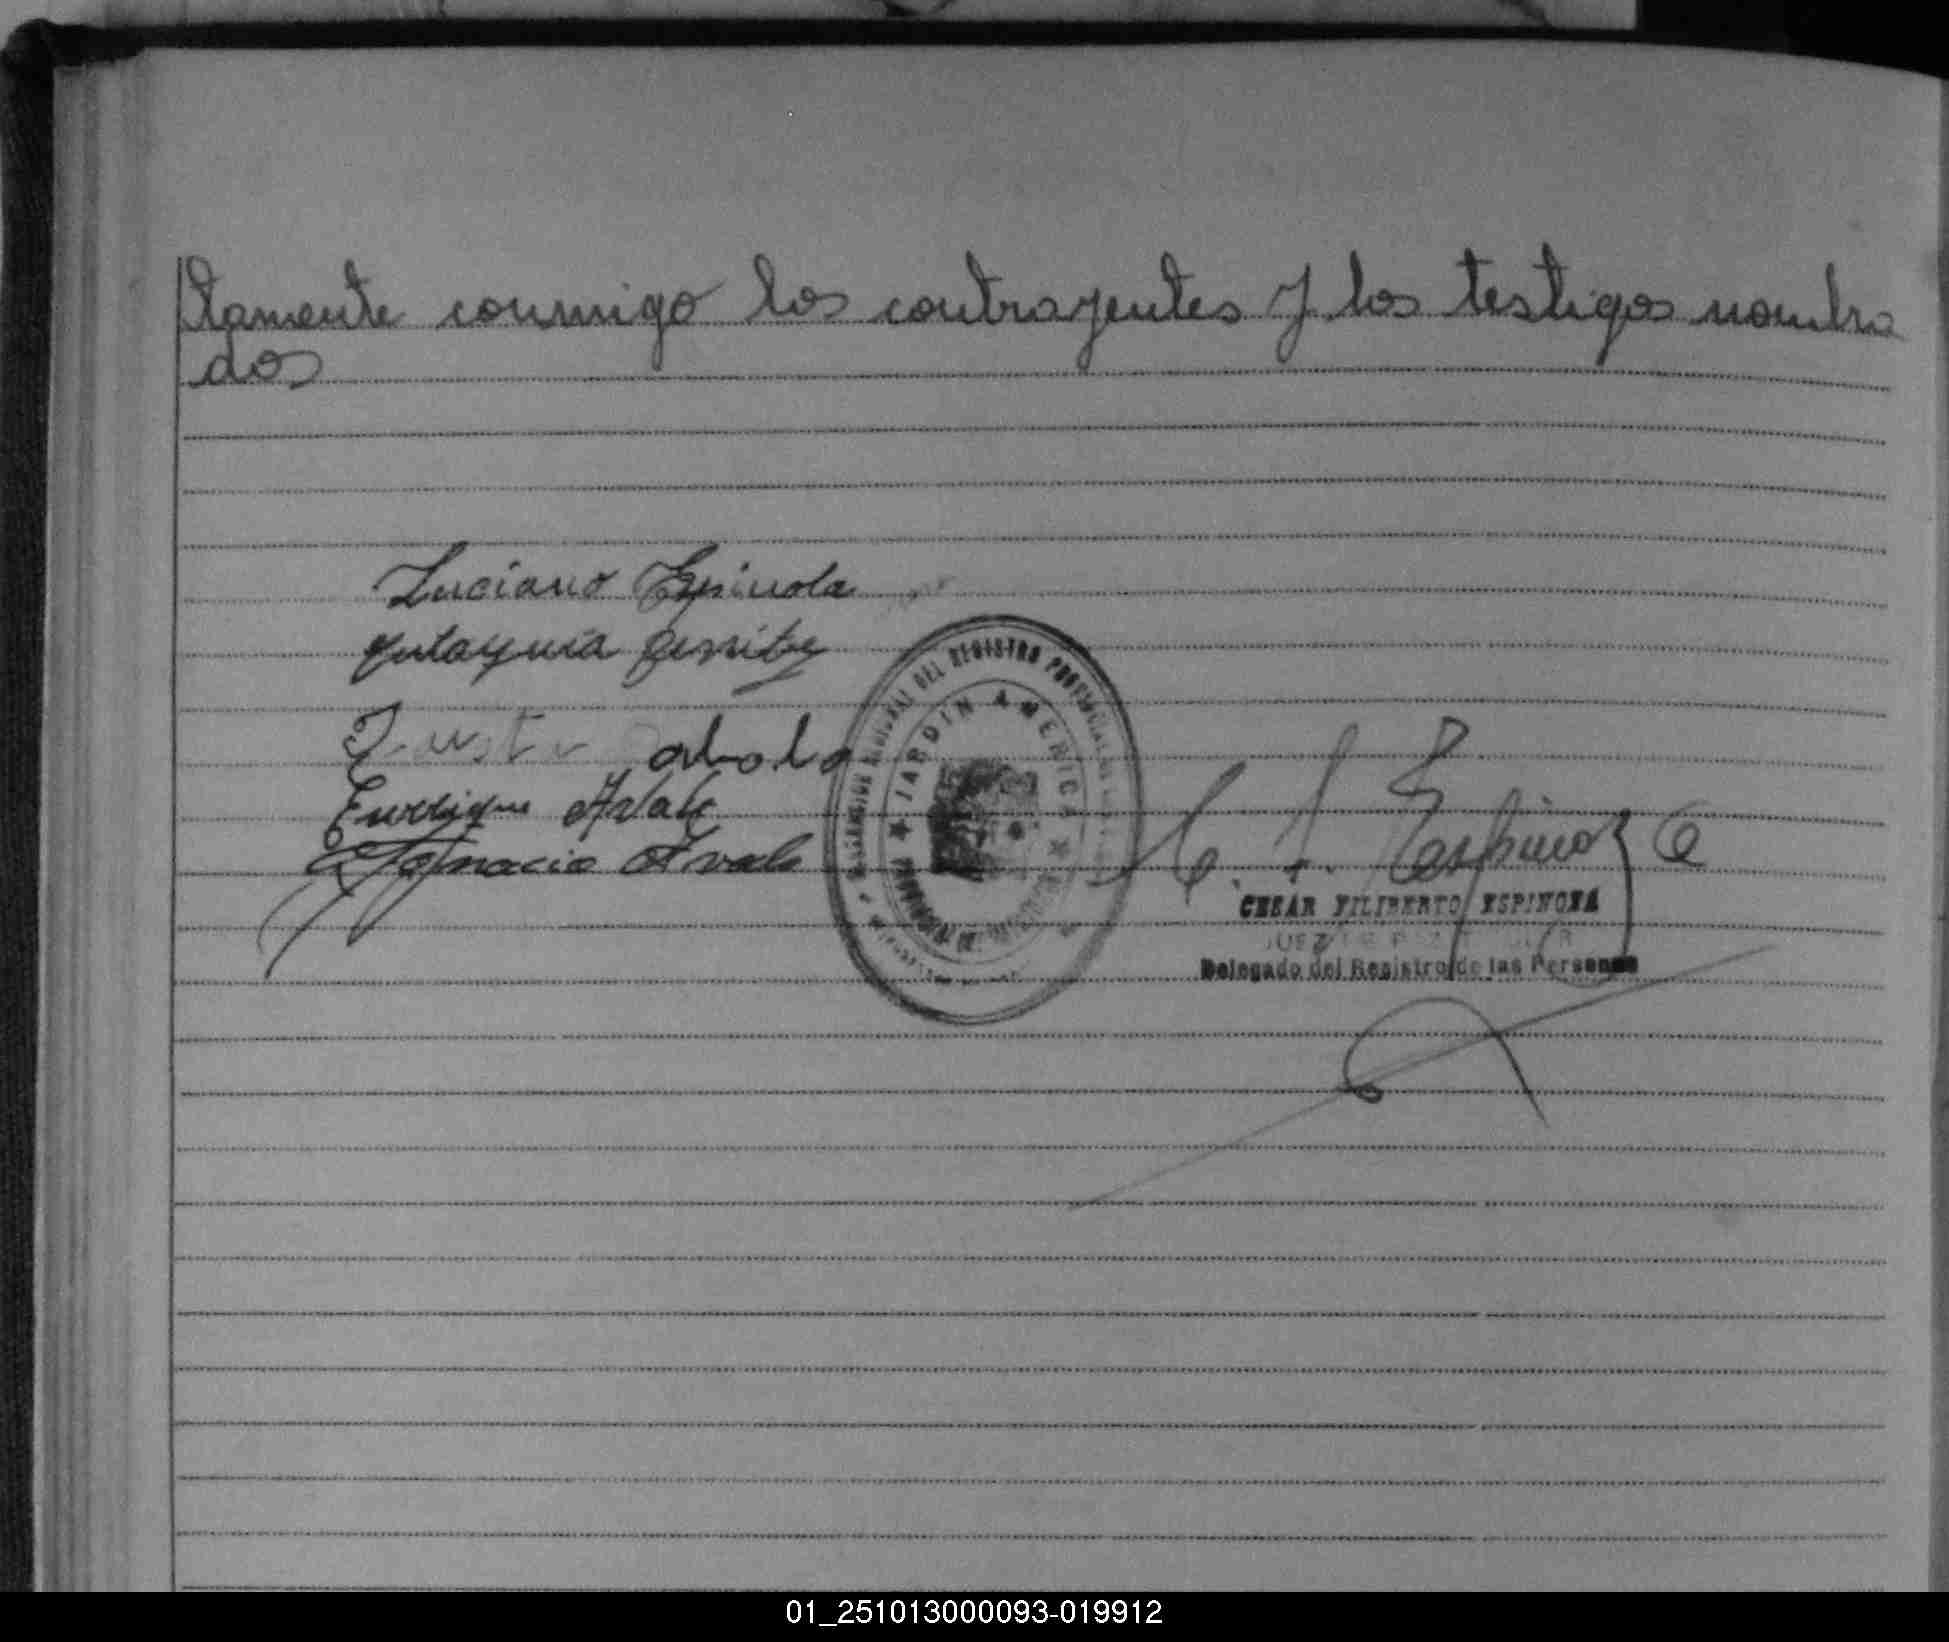 tamente conmigo los contrayentes y los testigos nombra
dos
Luciano Espinola
Enrique Avalo
Ignacio Avalo
DEL REGISTRO PROVINCIAL
JARDIN AMERICA
C. F. Espinoza
CESAR FILIBERTO ESPINOZA
JUEZ DE PAZ
Delegado del Registro de las Personas
01_251013000093-019912